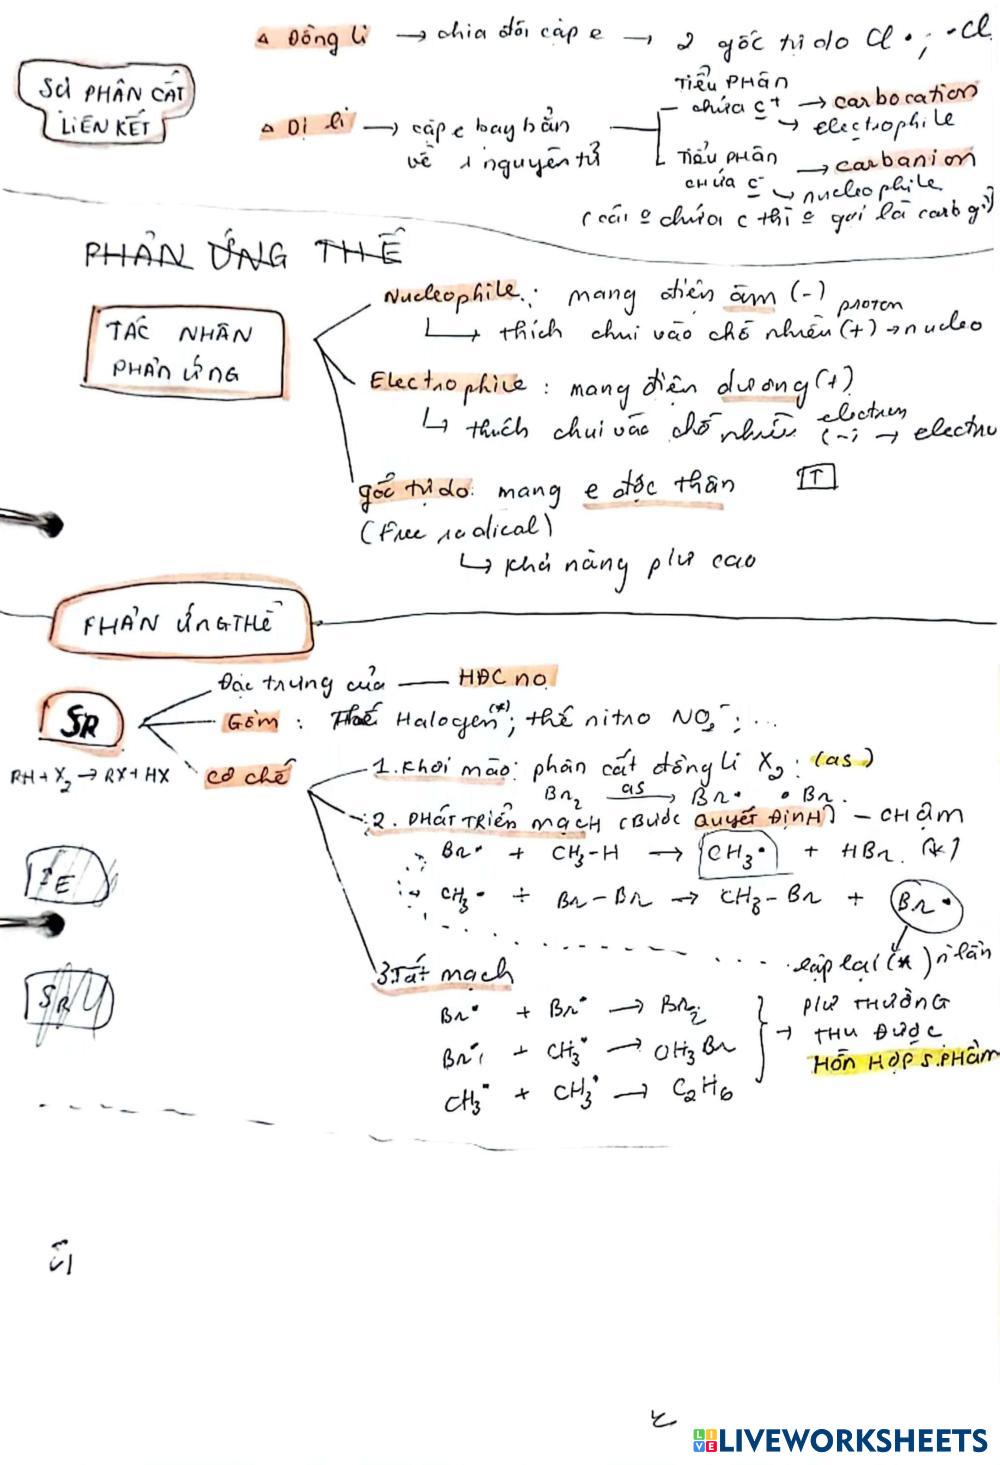 △ Đồng li → chia đôi cặp e → 2 gốc tự do Cl•, •Cl
SỰ PHÂN CẮT
LIÊN KẾT
△ Dị li → cặp e bay hẳn
về 1 nguyên tử
TIỂU PHÂN
chứa C+ → carbocation
→ electrophile
TIỂU PHÂN → carbanion
CHỨA C- → nucleophile
(cái o chứa C thì o gọi là carb gì)
PHẢN ỨNG THẾ
TÁC NHÂN
PHẢN ỨNG
Nucleophile: mang điện âm (-)
proton
↳ thích chui vào chỗ nhiều (+) → nucleo
Electrophile: mang điện dương (+)
electron
↳ thích chui vào chỗ nhiều (-) → electro
gốc tự do: mang e độc thân
T
(free radical)
↳ khả năng pư cao
PHẢN ỨNG THẾ
SR
Đặc trưng của — HĐC no
Gồm: Thế Halogen(*); thế nitro NO2; ...
RH + X2 → RX + HX
cơ chế
1. Khơi mào: phân cắt đồng li X2: (as)
Br2 as→ Br• •Br
2. PHÁT TRIỂN MẠCH (Bước QUYẾT ĐỊNH) – CHẬM
Br• + CH3-H → CH3• + HBr (*)
CH3• + Br-Br → CH3-Br + Br•
lặp lại (*) n lần
3. Tắt mạch
Br• + Br• → Br2
Br• + CH3• → CH3Br
CH3• + CH3• → C2H6
→ PƯ THƯỜNG
THU ĐƯỢC
HỖN HỢP S.PHẨM
E
SR
LIVEWORKSHEETS